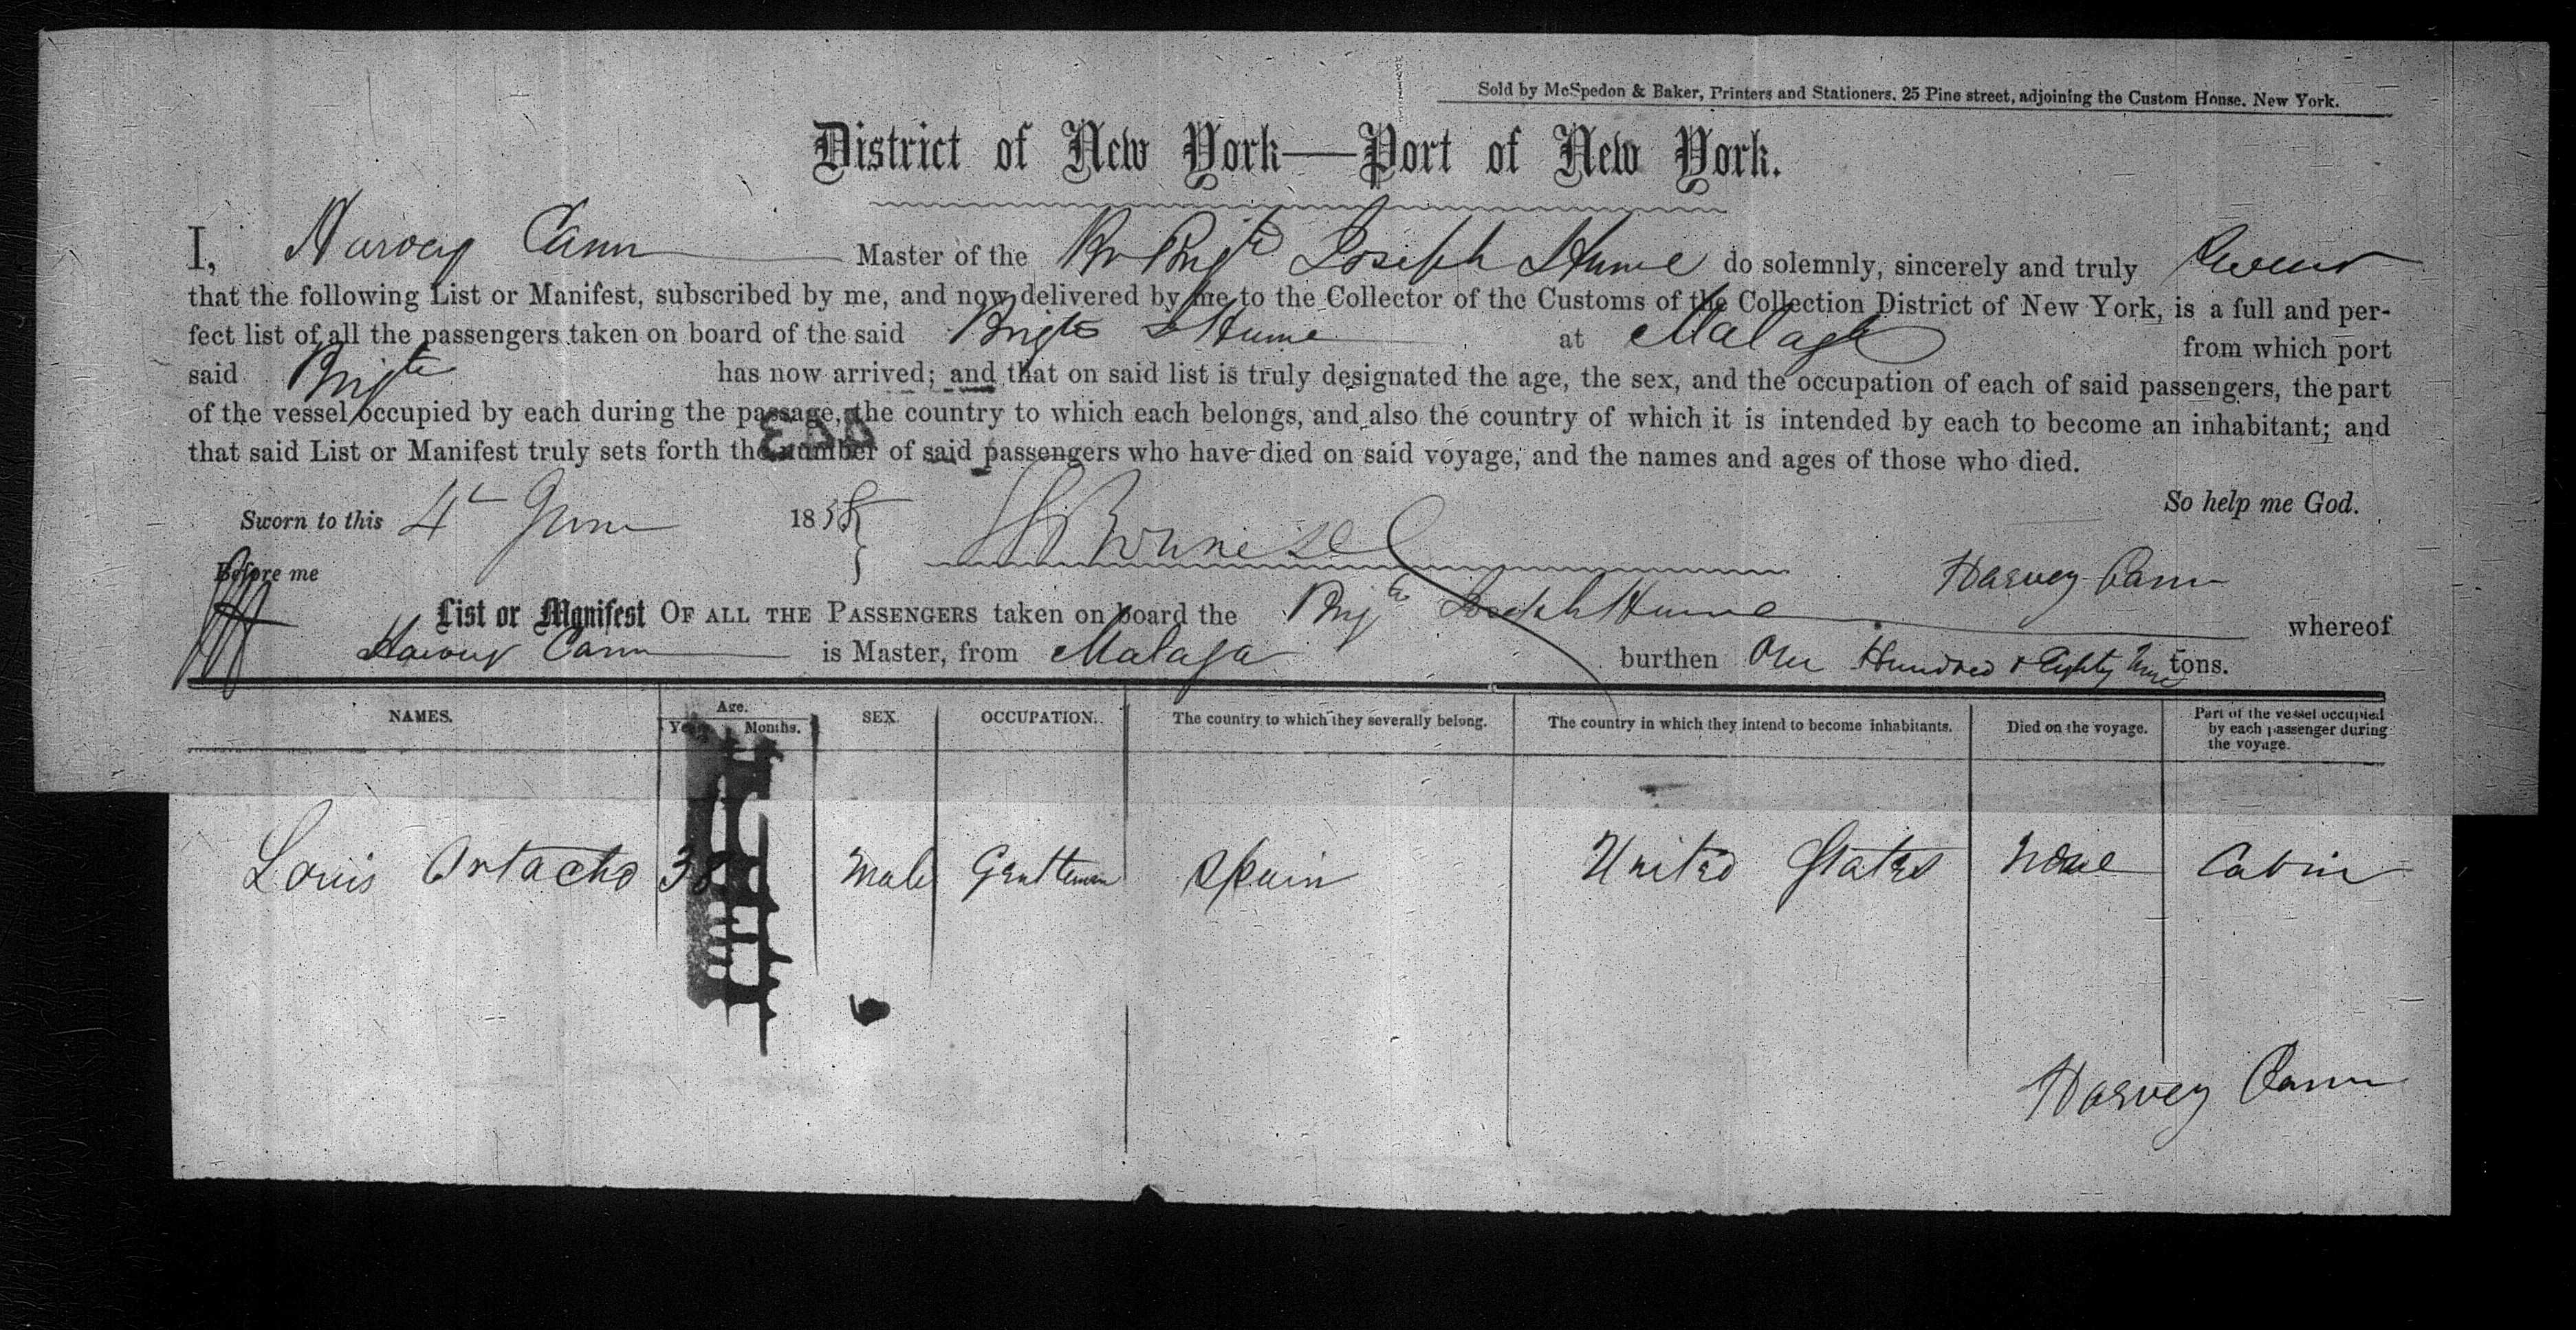 Sold by McSpedon & Baker, Printers and Stationers. 25 Pine street, adjoining the Custom House. New York.
District of New York—Port of New York.
I, Harvey Cann Master of the Br Brigte Joseph Hume do solemnly, sincerely and truly Swear
that the following List or Manifest, subscribed by me, and now delivered by me to the Collector of the Customs of the Collection District of New York, is a full and per-
fect list of all the passengers taken on board of the said Brigte J Hume at Malaga from which port
said Brigte has now arrived; and that on said list is truly designated the age, the sex, and the occupation of each of said passengers, the part
of the vessel occupied by each during the passage, the country to which each belongs, and also the country of which it is intended by each to become an inhabitant; and
that said List or Manifest truly sets forth the number of said passengers who have died on said voyage, and the names and ages of those who died.
So help me God.
Sworn to this 4th June 1858
Before me
Harvey Cann
List or Manifest OF ALL THE PASSENGERS taken on board the Brigte Joseph Hume whereof
Harvey Cann is Master, from Malaga burthen One Hundred & Eighty Nine tons.
NAMES. Age. Years. Months. SEX. OCCUPATION. The country to which they severally belong. The country in which they intend to become inhabitants. Died on the voyage. Part of the vessel occupied by each passenger during the voyage.
Louis Artacho 38 Male Gentleman Spain United States None Cabin
Harvey Cann